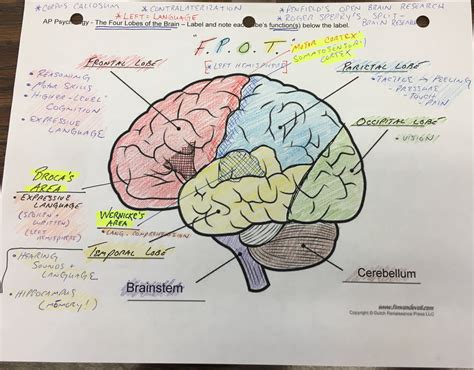 * CORPUS CALLOSUM
* CONTRALATERIZATION
* PENFIELD'S OPEN BRAIN RESEARCH
* LEFT = LANGUAGE
* ROGER SPERRY'S SPLIT-BRAIN RESEARCH
AP Psychology - The Four Lobes of the Brain – Label and note each lobe's function(s) below the label.
F. P. O. T.
* LEFT HEMISPHERE
MOTOR CORTEX
SOMATOSENSORY CORTEX
FRONTAL LOBE
• REASONING
• MOTOR SKILLS
• HIGHER-LEVEL
COGNITION
• EXPRESSIVE
LANGUAGE
PARIETAL LOBE
• TACTILE → FEELING
- PRESSURE
- TOUCH
- PAIN
OCCIPITAL LOBE
• VISION!
BROCA'S
AREA
• EXPRESSIVE
LANGUAGE
(SPOKEN +
WRITTEN)
(LEFT
HEMISPHERE)
WERNICKE'S
AREA
• LANG. COMPREHENSION
TEMPORAL LOBE
• HEARING
SOUNDS +
LANGUAGE
• HIPPOCAMPUS
(MEMORY!)
Brainstem
Cerebellum
www.timvandevall.com
Copyright © Dutch Renaissance Press LLC